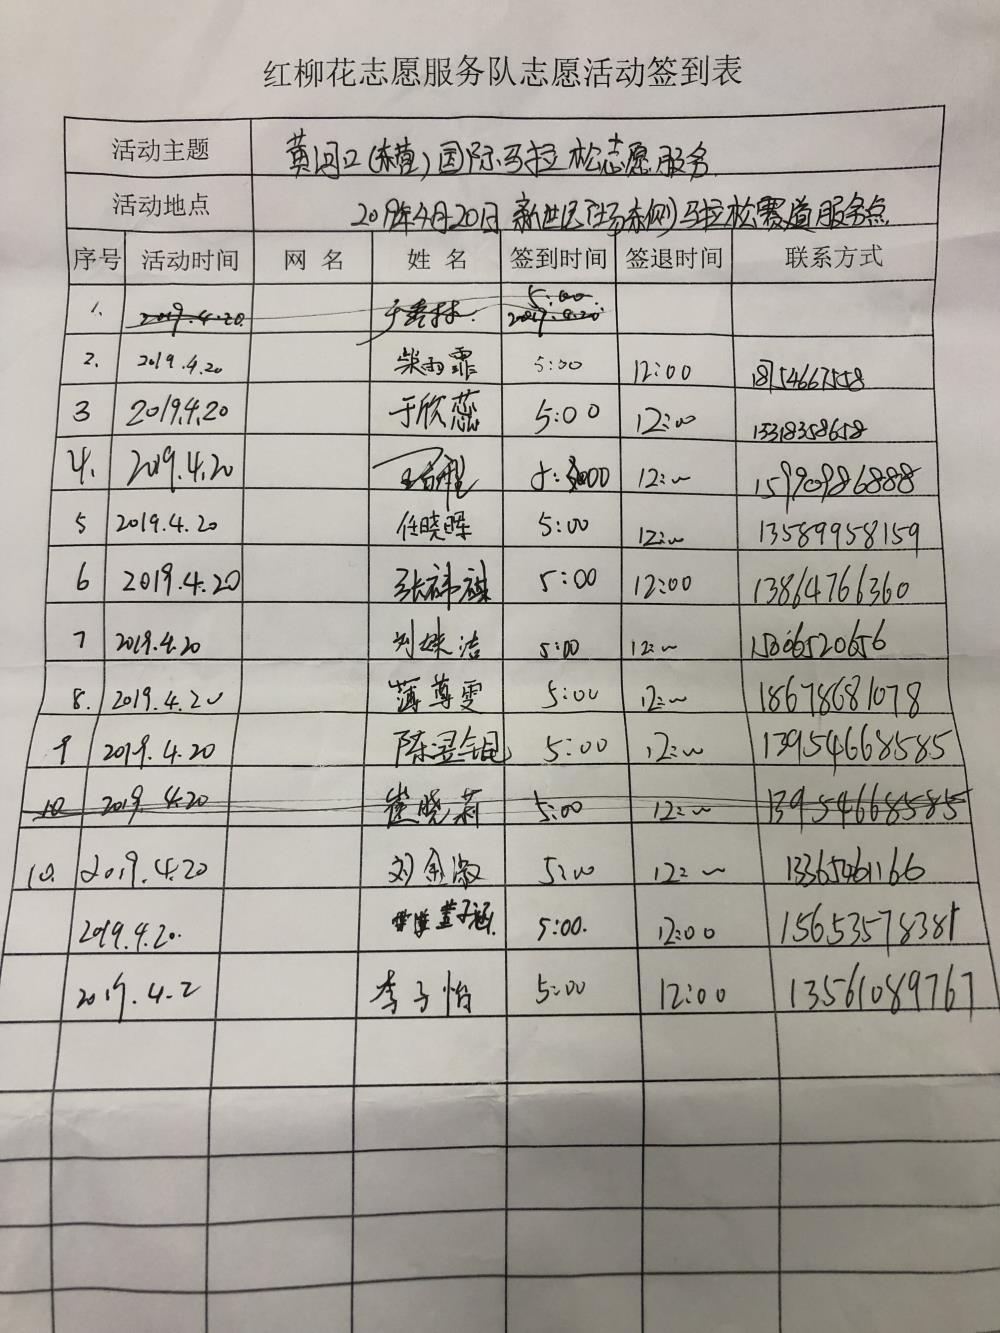 红柳花志愿服务队志愿活动签到表
活动主题 黄河口(东营)国际马拉松志愿服务
活动地点 2019年4月20日 新世纪广场东侧)马拉松赛道服务点
序号 活动时间 网 名 姓 名 签到时间 签退时间 联系方式
1. 2019.4.20. 于秀林 5:00 2019.4.20
2. 2019.4.20 柴雨霏 5:00 12:00 18754667558
3 2019.4.20 于欣蕊 5:00 12:00 15318358658
4. 2019.4.20 12:00 15990986888
5 2019.4.20 任晓晖 5:00 12:00 13589958159
6 2019.4.20 张祎祺 5:00 12:00 13864766360
7 2019.4.20 刘姝洁 5:00 12:00 15006520656
8. 2019.4.20 薄尊雯 5:00 12:00 18678681078
9 2019.4.20 5:00 12:00 13954668585
10. 2019.4.20 崔晓莉 5:00 12:00 13954668585
10. 2019.4.20 刘金淑 5:00 12:00 13365461166
2019.4.20. 盖子涵 5:00. 12:00 15653578381
2019.4.2 李子怡 5:00 12:00 13561089767